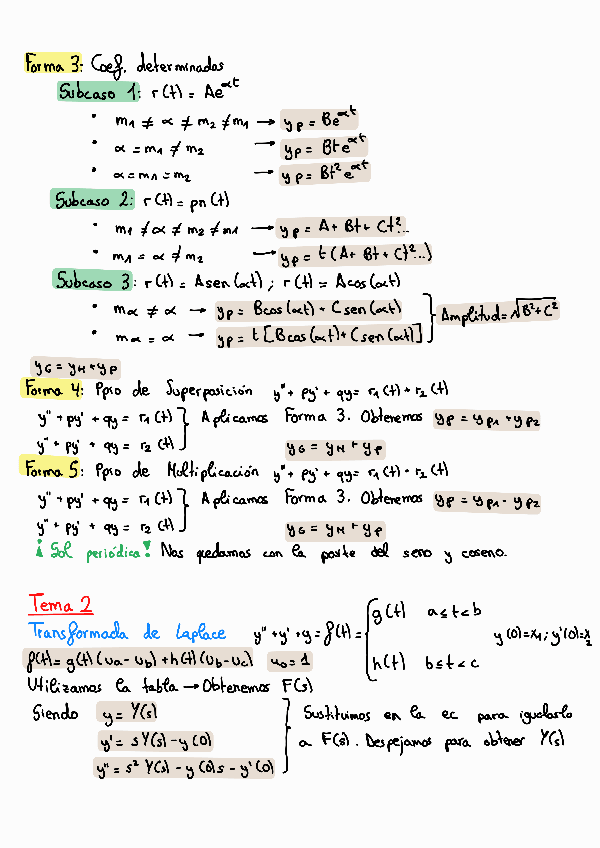 Forma 3: Coef. determinados
Subcaso 1: r(t) = Ae^αt
• m1 ≠ α ≠ m2 ≠ m1 → yp = Be^αt
• α = m1 ≠ m2 → yp = Bte^αt
• α = m1 = m2 → yp = Bt²e^αt
Subcaso 2: r(t) = pn(t)
• m1 ≠ α ≠ m2 ≠ m1 → yp = A + Bt + Ct²...
• m1 = α ≠ m2 → yp = t(A + Bt + Ct²...)
Subcaso 3: r(t) = Asen(αt); r(t) = Acos(αt)
• mα ≠ α → yp = Bcos(αt) + Csen(αt)
• mα = α → yp = t[Bcos(αt) + Csen(αt)]
Amplitud = √B²+C²
yG = yH + yp
Forma 4: Ppio de Superposición y'' + py' + qy = r1(t) + r2(t)
y'' + py' + qy = r1(t) } Aplicamos Forma 3. Obtenemos yp = yp1 + yp2
y'' + py' + qy = r2(t) yG = yH + yp
Forma 5: Ppio de Multiplicación y'' + py' + qy = r1(t) · r2(t)
y'' + py' + qy = r1(t) } Aplicamos Forma 3. Obtenemos yp = yp1 · yp2
y'' + py' + qy = r2(t) yG = yH + yp
¡Sol periódica! Nos quedamos con la parte del seno y coseno.
Tema 2
Transformada de Laplace y'' + y' + y = f(t) = { g(t) a ≤ t < b
h(t) b ≤ t < c
y(0) = x1; y'(0) = x2
f(t) = g(t)(ua - ub) + h(t)(ub - uc) u0 = 1
Utilizamos la tabla → Obtenemos F(s)
Siendo y = Y(s)
y' = sY(s) - y(0)
y'' = s²Y(s) - y(0)s - y'(0)
Sustituimos en la ec para igualarlo
a F(s). Despejamos para obtener Y(s)